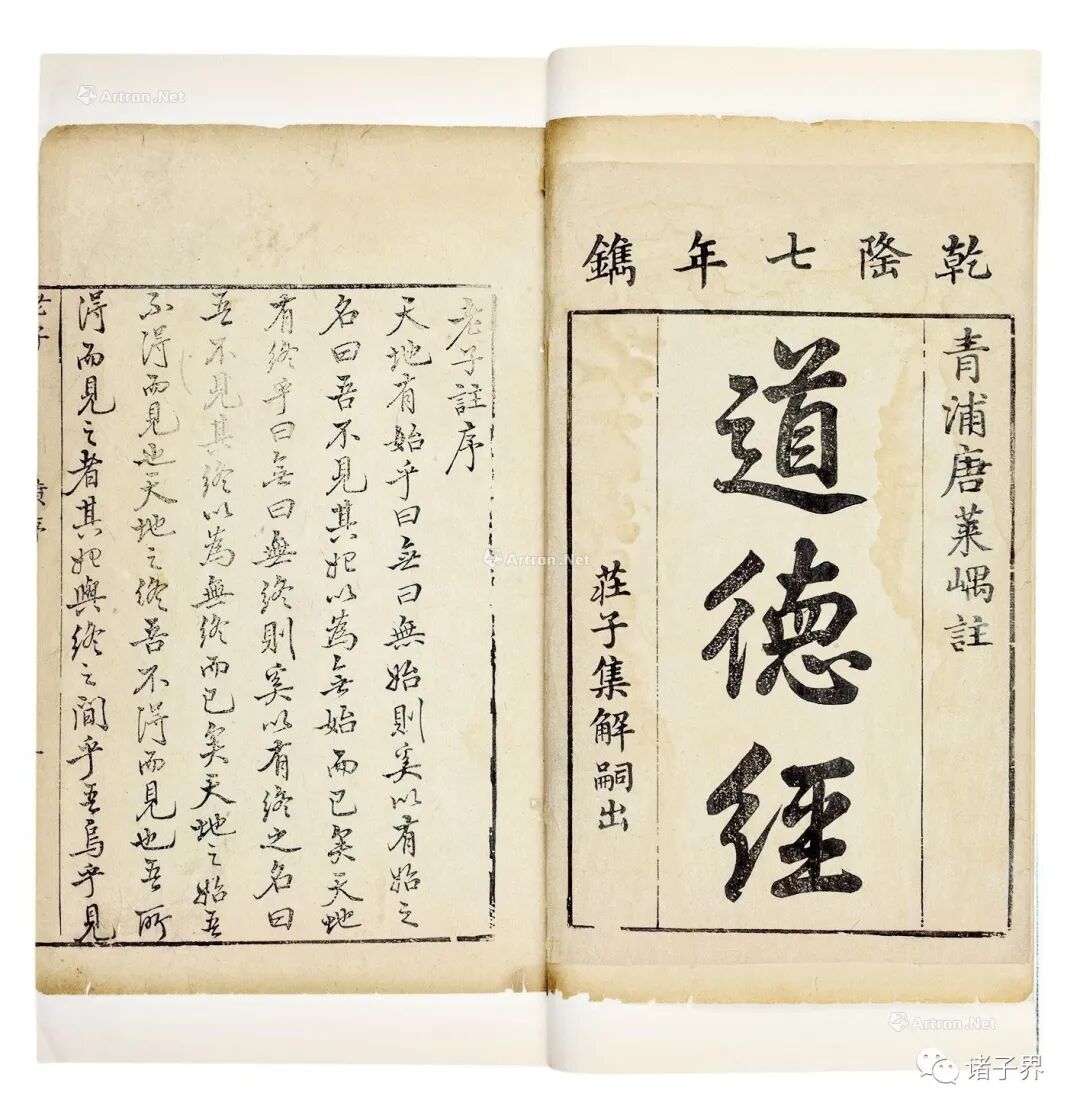 乾隆七年鐫
青浦唐萊嵎註
道德經
莊子集解嗣出
老子註序
天地有始乎曰無曰無始則奚以有始之
名曰吾不見其始以為無始而已矣天地
有終乎曰無曰無終則奚以有終之名曰
吾不見其終以為無終而已矣天地之始吾
不得而見也天地之終吾不得而見也吾所
得而見之者其始與終之間乎吾烏乎見
老子
序
一
Artron.Net
Artron.Net
Artron.Net
诸子界